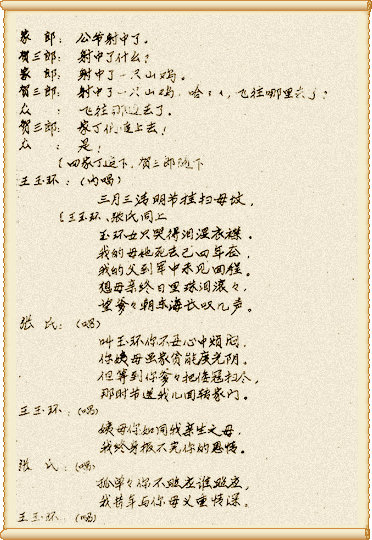 家郎：公爷射中了。
贺三郎：射中了什么？
家郎：射中了一只山鸡。
贺三郎：射中了一只山鸡，哈々々，飞往哪里去了？
众：飞往那边去了。
贺三郎：家丁们追上去！
众：是！
（四家丁追下，贺三郎随下
王玉环：（内唱）
三月三清明节挂扫母坟，
（王玉环、张氏同上
玉环女只哭得泪湿衣襟。
我的母她死去已四年态，
我的父到军中未见回程。
想母亲终日里珠泪滚々，
望爹々朝东海长叹几声。
张氏：（唱）
叫玉环你不必心中烦恼，
你姨母里家贫能度光阴。
但等到你爹々把倭寇扫尽，
那时节送我儿回转家门。
王玉环：（唱）
姨母你如同我亲生之母，
我终身报不完你的恩情。
张氏：（唱）
孤单々你不照应谁照应，
我昔年与你母义重情深。
王玉环：（唱）